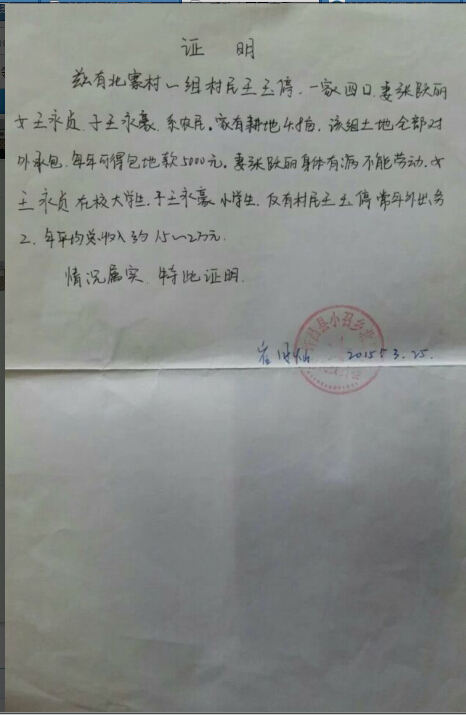 证 明
兹有北寨村一组村民王玉停,一家四口,妻张跃丽
女王永贞,子王永豪,系农民。家有耕地4.8亩,该组土地全部对
外承包,每年可得包地款5000元。妻张跃丽身体有病不能劳动,女
王永贞在校大学生,子王永豪小学生,仅有村民王玉停常年外出务
工,年平均总收入约1.5~2万元.
情况属实,特此证明.
县小召乡北
2015.3.25.